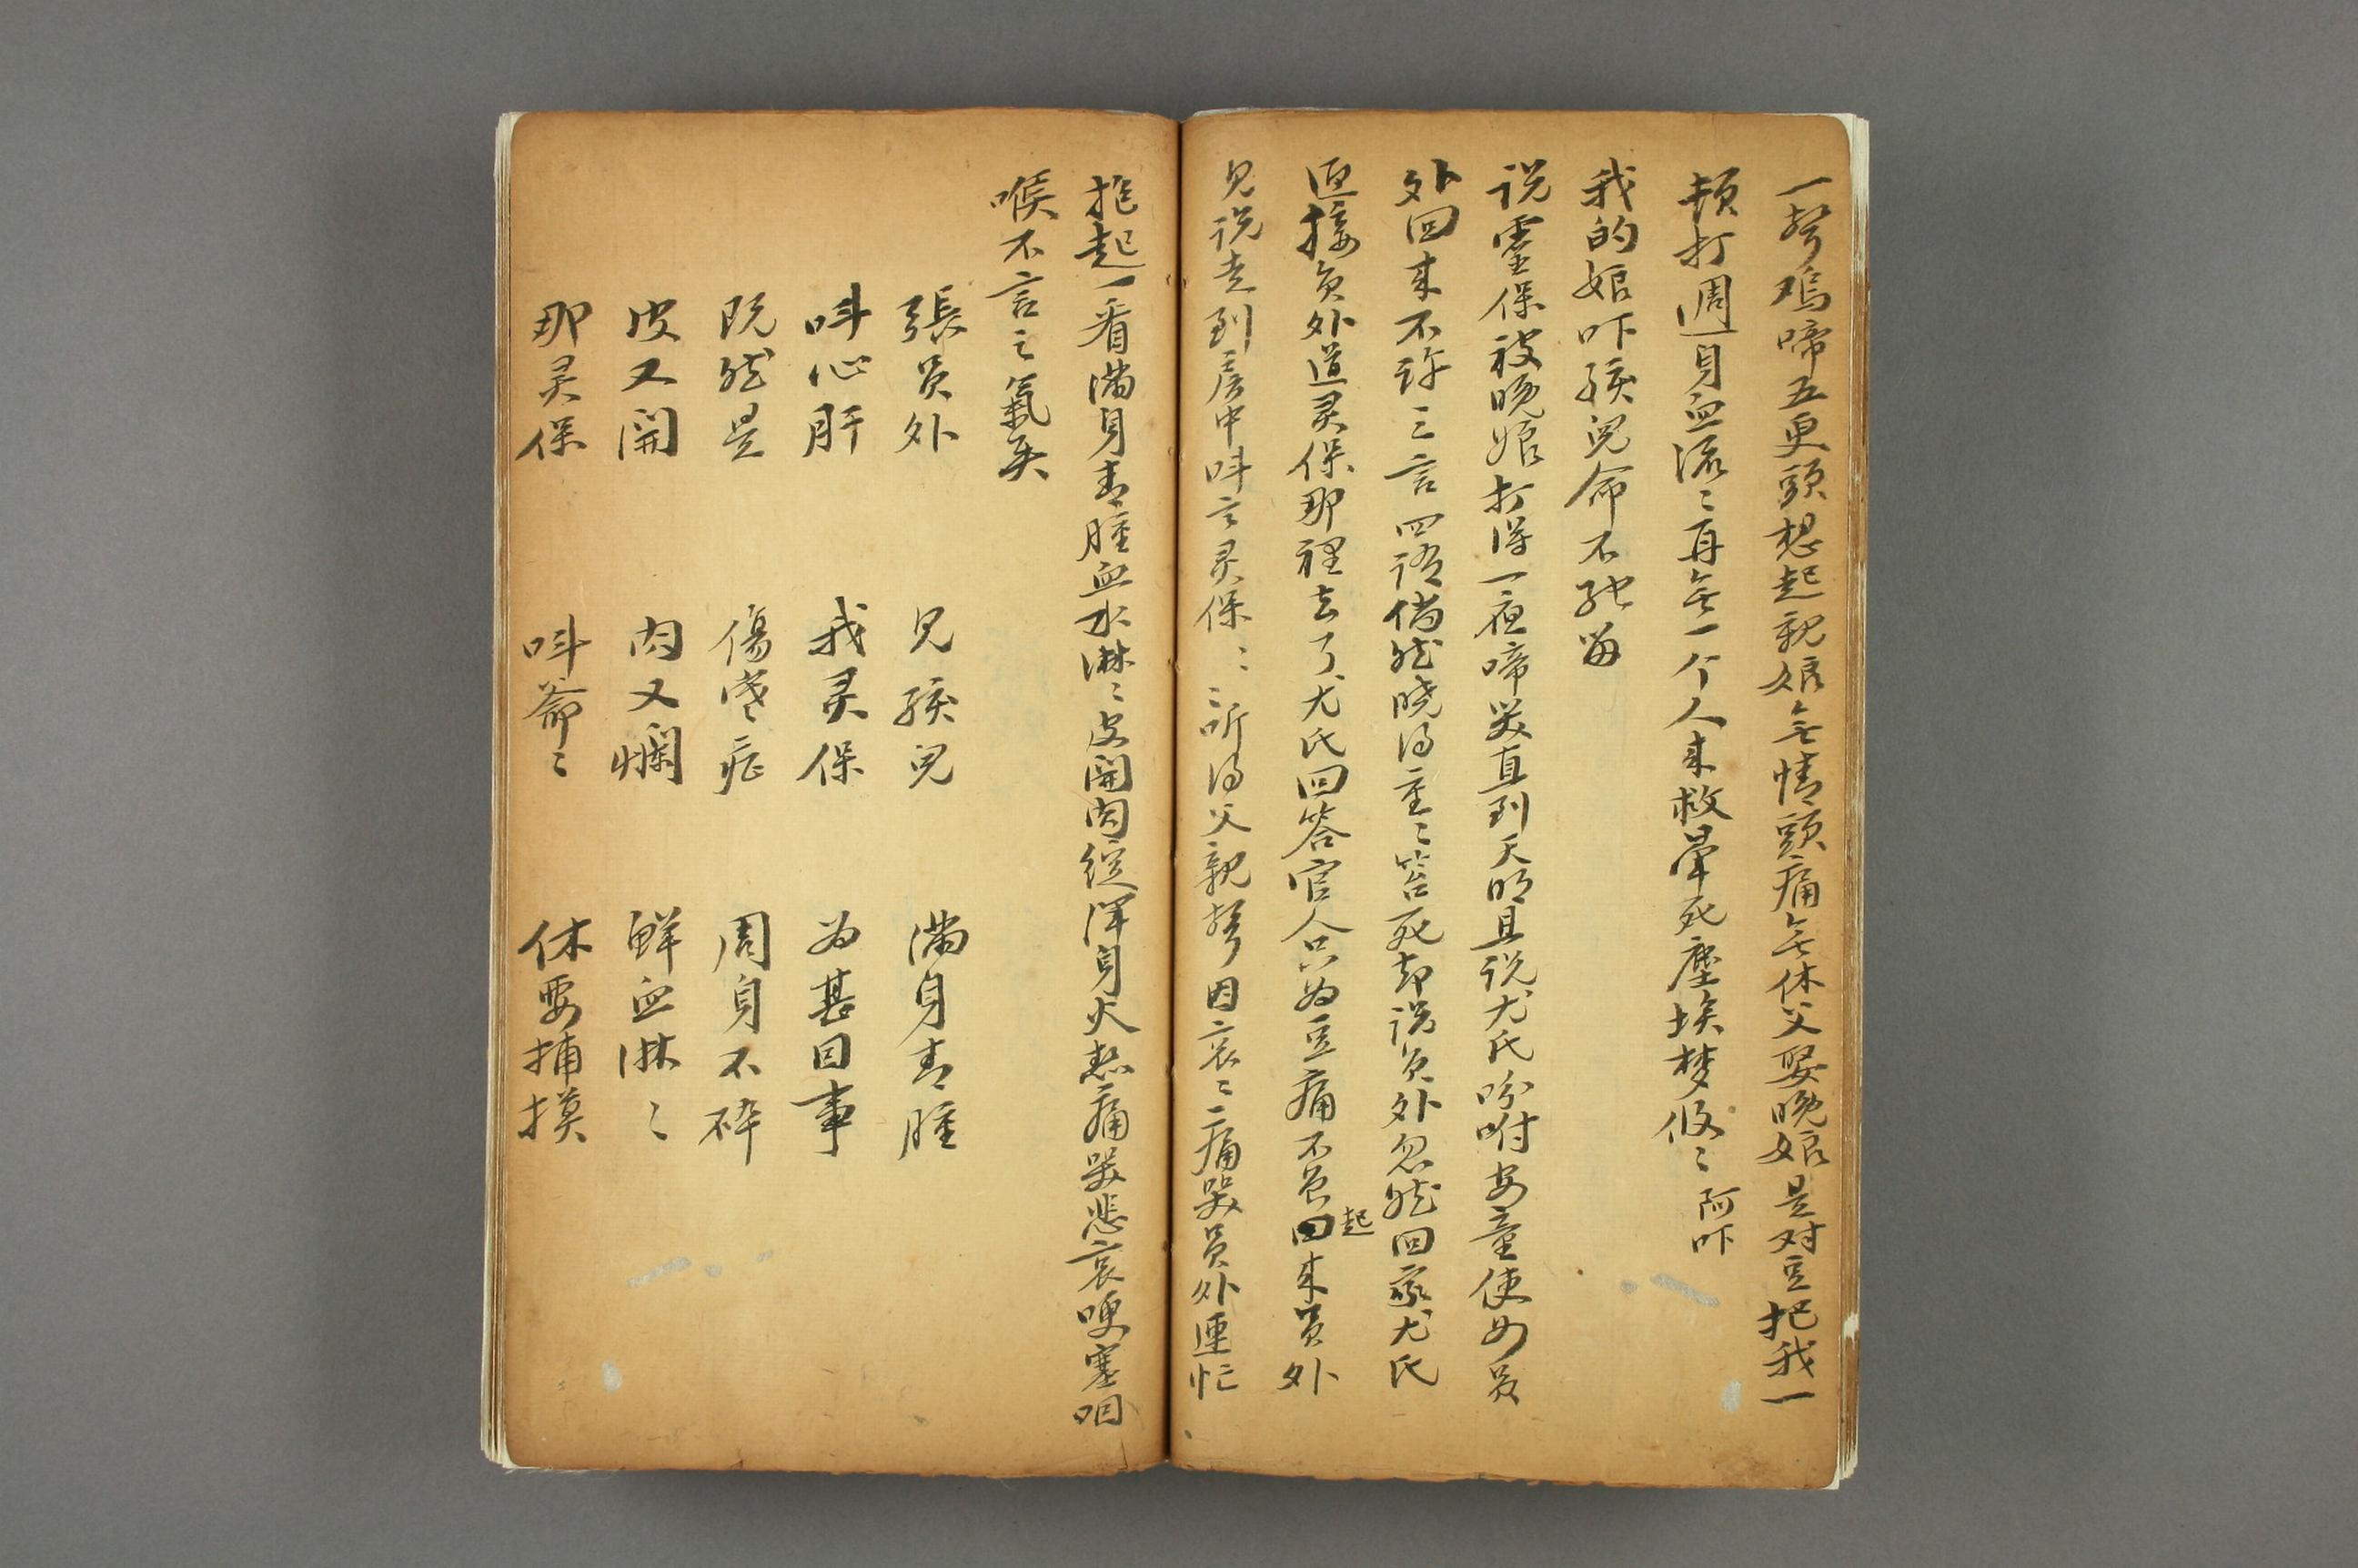 一声鸡啼五更頭想起親娘無情頭痛無休父娶晚娘是对豆把我一
頓打週身血流〻再無一个人来救暈死塵埃梦攸〻阿吓
我的娘吓孩兒命不能留
说靈保被晚娘打得一夜啼哭直到天明且说尤氏吩咐安童使女员
外回来不許三言四语倘然晓得重〻笞死却说员外忽然回家尤氏
迎接员外道灵保那裡去了尤氏回答官人只为豆痛不曾起来员外
見说走到房中叫言灵保〻〻听得父親声因哀〻痛哭员外連忙
抱起一看满身青腫血水淋〻皮開肉綻渾身火热痛哭悲哀哽塞咽
喉不言之氣矣
張员外　見孩兒　满身青腫
叫心肝　我灵保　为甚因事
既然是　傷寒症　周身不碎
皮又開　肉又爛　鮮血淋〻
那灵保　叫爺〻　休要捕摸